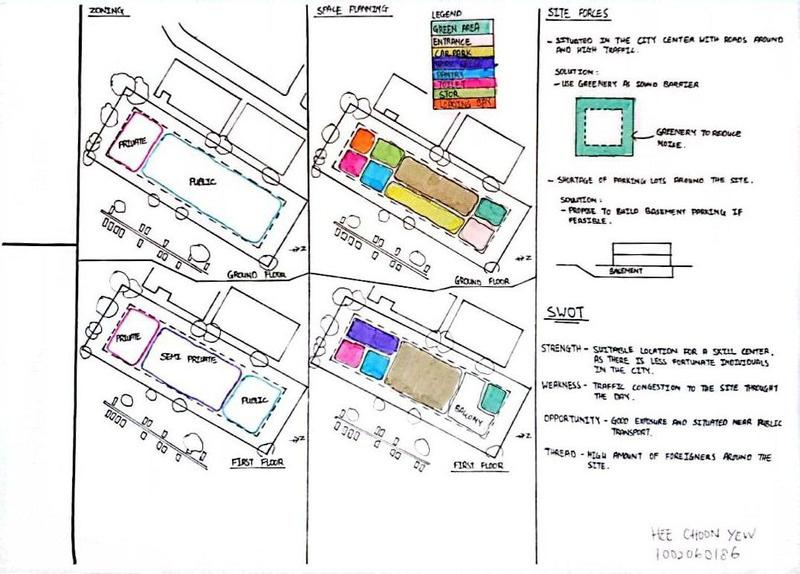 ZONING
PRIVATE
PUBLIC
→Z
GROUND FLOOR
PRIVATE
SEMI PRIVATE
PUBLIC
→Z
FIRST FLOOR
SPACE PLANNING
LEGEND
GREEN AREA
ENTRANCE
CAR PARK
PANTRY
TOILET
STOR
LOADING BAY
→Z
GROUND FLOOR
BALCONY
→Z
FIRST FLOOR
SITE FORCES
- SITUATED IN THE CITY CENTER WITH ROADS AROUND
AND HIGH TRAFFIC.
SOLUTION :
- USE GREENERY AS SOUND BARRIER
GREENERY TO REDUCE
NOISE.
- SHORTAGE OF PARKING LOTS AROUND THE SITE.
SOLUTION :
- PROPOSE TO BUILD BASEMENT PARKING IF
FEASIBLE.
BASEMENT
SWOT
STRENGTH - SUITABLE LOCATION FOR A SKILL CENTER,
AS THERE IS LESS FORTUNATE INDIVIDUALS
IN THE CITY.
WEAKNESS - TRAFFIC CONGESTION TO THE SITE THROUGHT
THE DAY.
OPPORTUNITY - GOOD EXPOSURE AND SITUATED NEAR PUBLIC
TRANSPORT.
THREAD - HIGH AMOUNT OF FOREIGNERS AROUND THE
SITE.
HEE CHOON YEW
1002060186